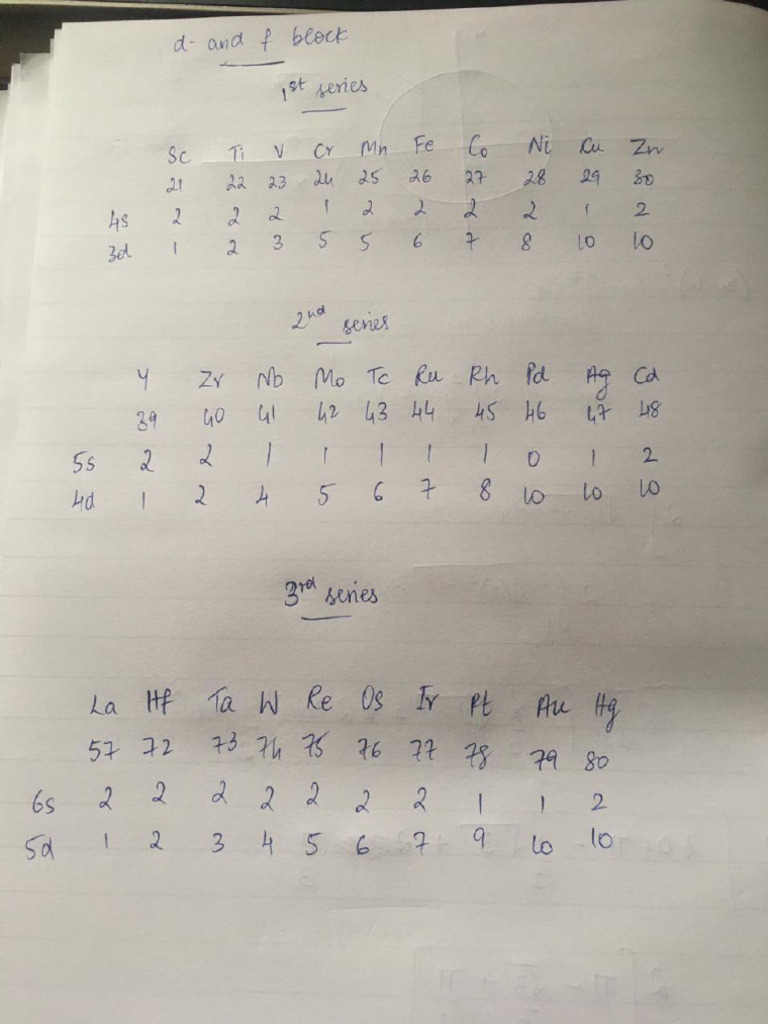 d- and f block
1st series
Sc Ti V Cr Mn Fe Co Ni Cu Zn
21 22 23 24 25 26 27 28 29 30
4s 2 2 2 1 2 2 2 2 1 2
3d 1 2 3 5 5 6 7 8 10 10
2nd series
Y Zr Nb Mo Tc Ru Rh Pd Ag Cd
39 40 41 42 43 44 45 46 47 48
5s 2 2 1 1 1 1 1 0 1 2
4d 1 2 4 5 6 7 8 10 10 10
3rd series
La Hf Ta W Re Os Ir Pt Au Hg
57 72 73 74 75 76 77 78 79 80
6s 2 2 2 2 2 2 2 1 1 2
5d 1 2 3 4 5 6 7 9 10 10